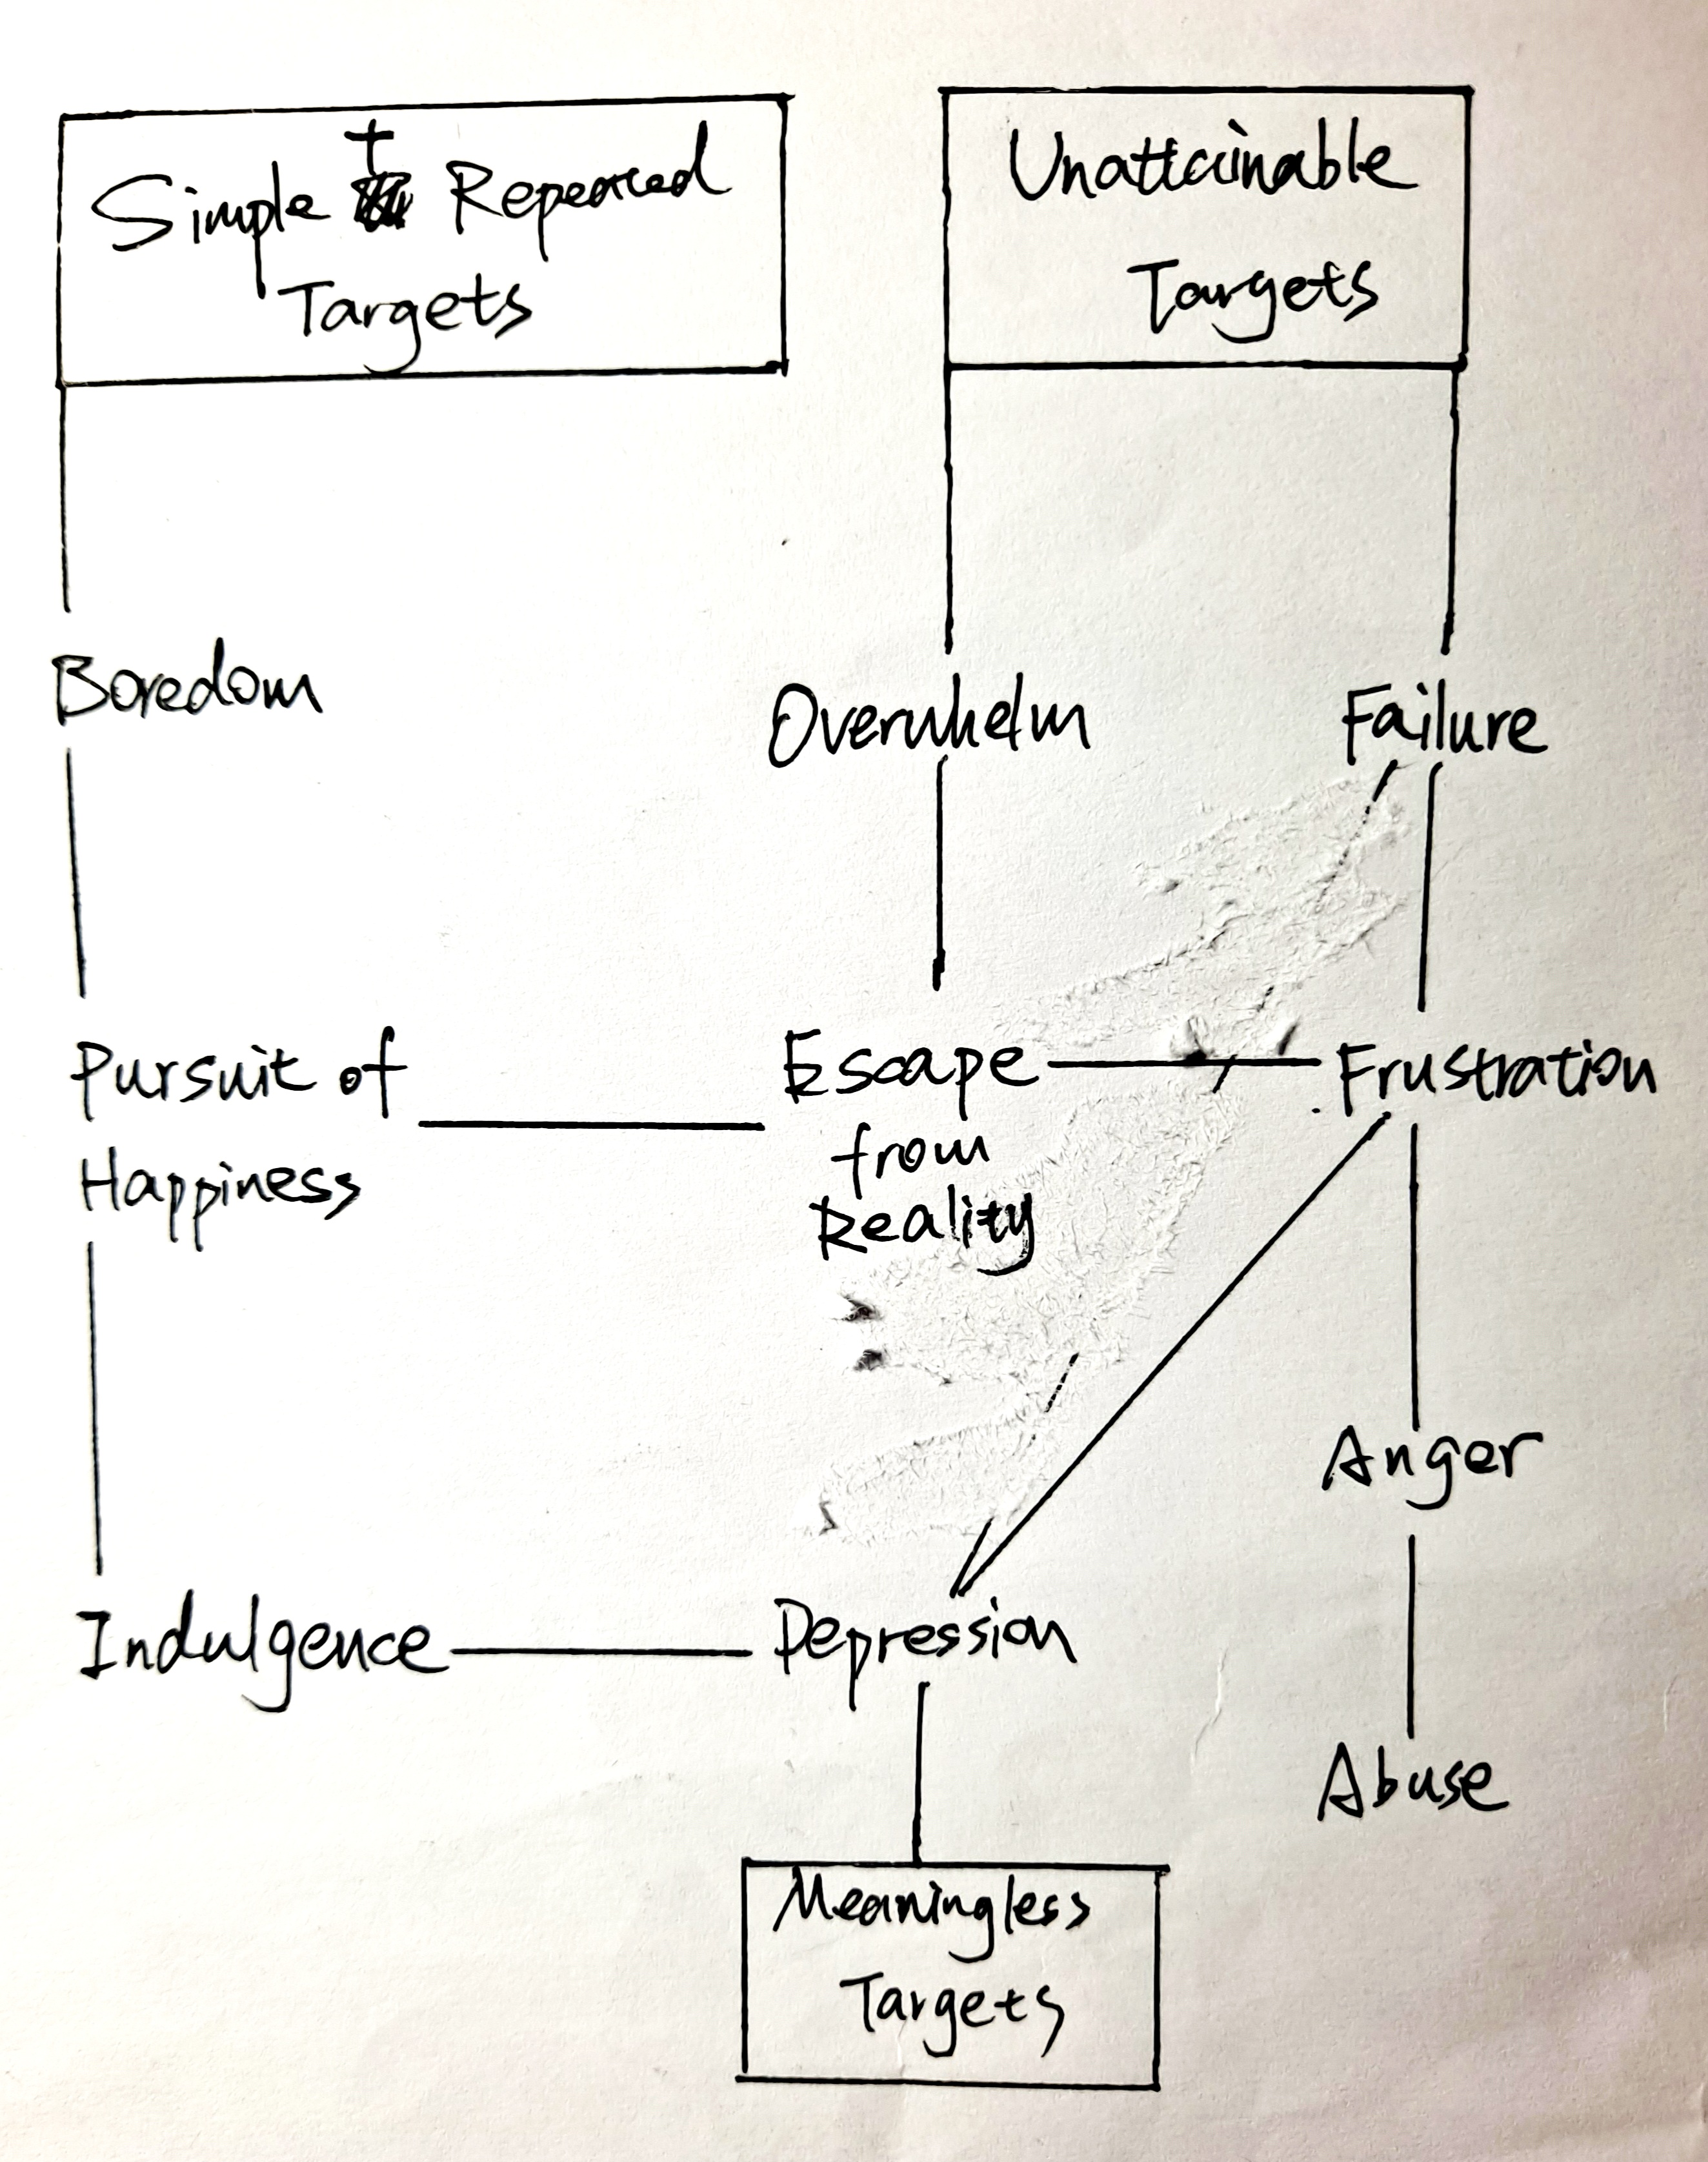 Simple + Repeated
Targets
Unattainable
Targets
Boredom
Overwhelm
Failure
Pursuit of
Happiness
Escape
from
Reality
Frustration
Anger
Indulgence
Depression
Abuse
Meaningless
Targets